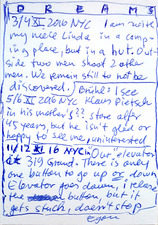 DREAMS
3/4 XI 2016 NYC I am with
my niece Linda in a camp-
ing place, but in a hut. Out-
side two men shoot 2 other
men. We remain still to not be
discovered.) Brühl: I see
5/6 XI 2016 NYC Klaus Pietsch
in his mother's ?? store after
45 years, but he isn't glad or
happy to see me, uninterested
11/12 XI 16 NYC: Our "elevator"
at 319 Grand. There is only
one button to go up or down
Elevator goes down, I release
the button, but it
gets stuck, doesn't stop